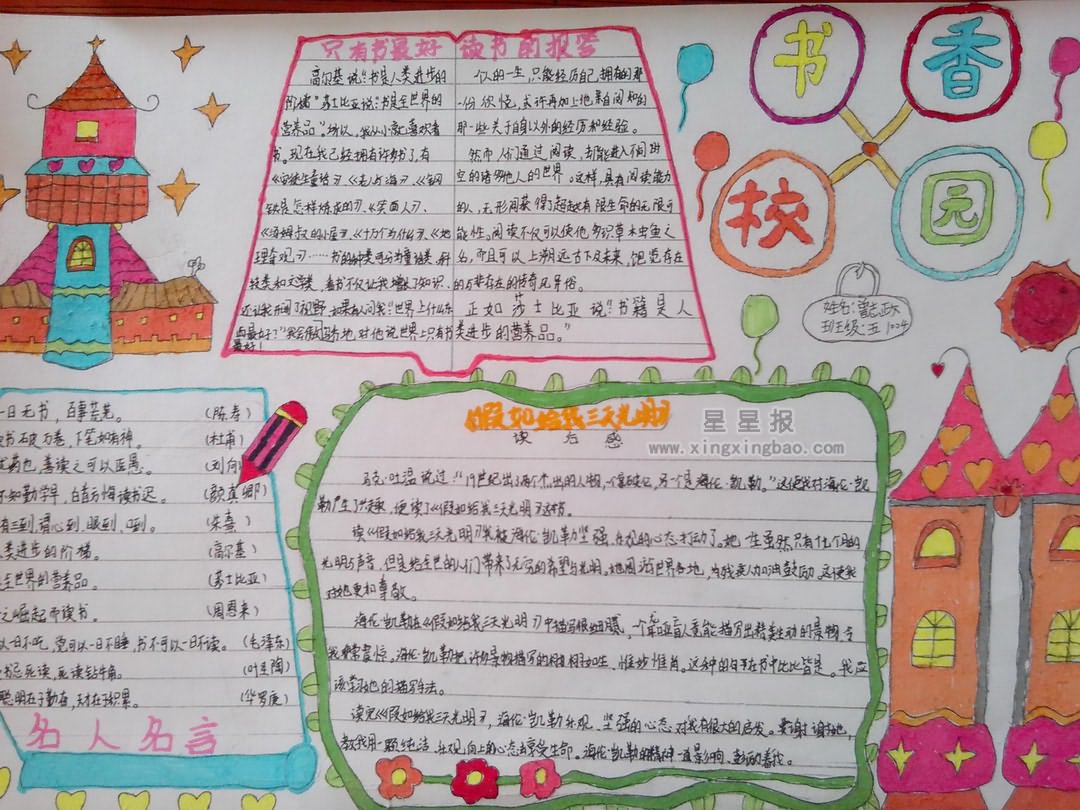 只有书最好
高尔基说:“书是人类进步的
阶梯”莎士比亚说:“书是全世界的
营养品”所以,我从小就喜欢看
书。现在我已经拥有许多书了,有
《安徒生童话》、《老人与海》、《钢
铁是怎样炼成的》、《笑面人》、
《汤姆叔叔的小屋》、《十万个为什么》、《地
书的种类可分为童话类、科
技类和文学类,看书不仅让我增长了知识、
还让我开阔了视野,如果有人问我:“世界上什么东
西最好?”我会骄傲地对他说世界上只有书
最好!
读书的报答
人的一生,只能经历自己拥有的那
一份欣悦,
那一些关于自身以外的经历和经验。
然而人们通过阅读,却能进入不同时
空的诸多他人的世界。这样,具有阅读能力
的人,无形间获得了超越有限生命的无限可
能性。阅读不仅可以使他多识草木虫鱼之
名,而且可以上溯远古下及未来,饱览存在
的与非存在的奇风异俗。
正如莎士比亚说:“书籍是人
类进步的营养品。”
书
香
校
园
姓名:
班级:五
一日无书,百事荒芜。(陈寿)
读书破万卷,下笔如有神。(杜甫)
药也,善读之可以医愚。(刘向)
不知勤学早,白首方悔读书迟。(颜真卿)
有三到,谓心到、眼到、口到。(朱熹)
类进步的阶梯。(高尔基)
全世界的营养品。(莎士比亚)
之崛起而读书。(周恩来)
以一日不吃,觉可以一日不睡,书不可以一日不读。(毛泽东)
书忌死读,死读钻牛角。(叶圣陶)
聪明在于勤奋,天才在于积累。(华罗庚)
名人名言
《假如给我三天光明》
读后感
星星报
www.xingxingbao.com
马克·吐温说过:“19世纪出了两个杰出的人物,一个是拿破仑,另一个是海伦·凯勒。”这使我对海伦·凯
勒产生了兴趣,便读了《假如给我三天光明》这本书。
读《假如给我三天光明》我被海伦·凯勒坚强、乐观的心态打动了。她一生虽然只有十九个月的
光明与声音,但是她给全世的人们带来了无穷的希望与光明。她周游世界各地,为残疾人加油鼓励,这使我
对她更加尊敬。
海伦·凯勒在《假如给我三天光明》中描写很细腻,一个聋哑盲人竟能描写出精美生动的景物令
我非常震惊。海伦·凯勒把许多景物描写的栩栩如生、惟妙惟肖。这种的句子在书中比比皆是。我应
该学习她的描写手法。
读完《假如给我三天光明》,海伦·凯勒乐观、坚强的心态对我有很大的启发。要谢谢她,
教我用一颗纯洁、乐观、向上的心态去享受生命。海伦·凯勒的精神一直影响、鼓励着我。